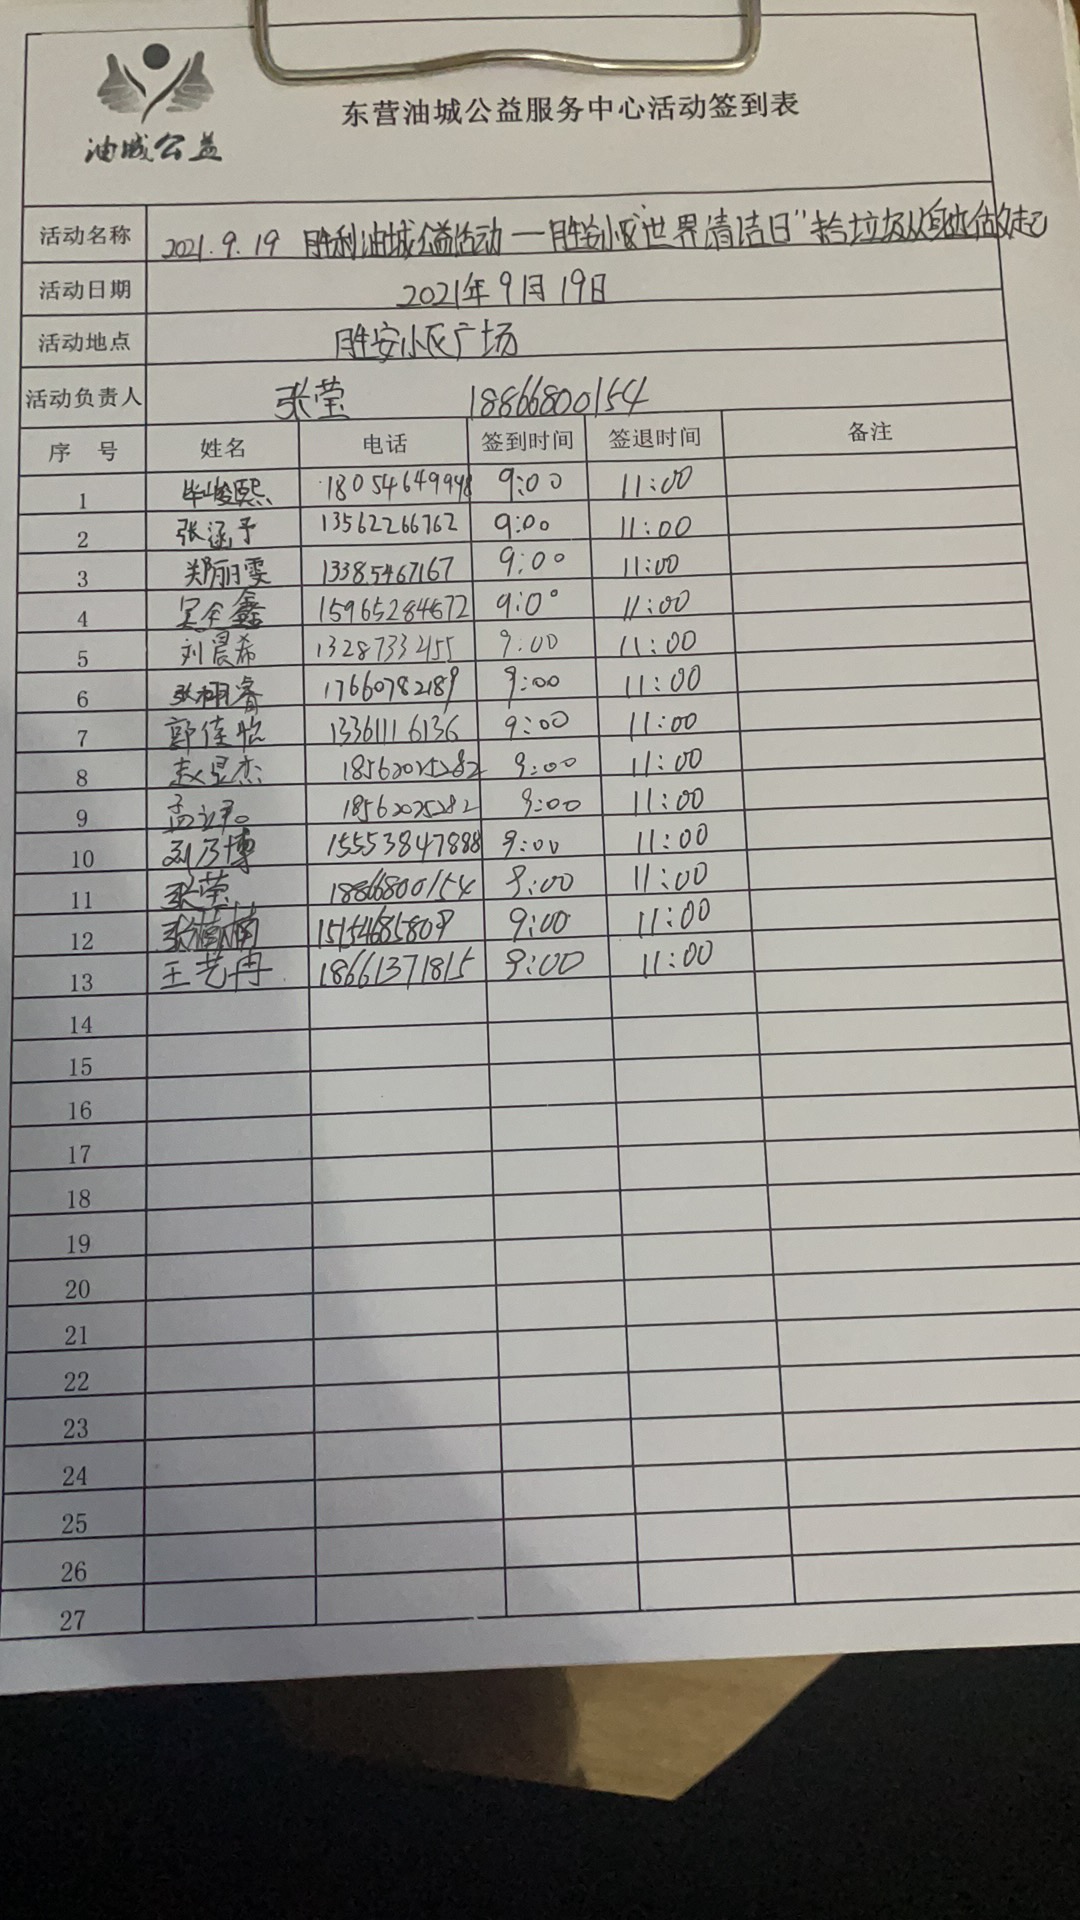 油城公益
东营油城公益服务中心活动签到表
活动名称 2021.9.19 胜利油城公益活动一胜安小区"世界清洁日"拾垃圾从身边做起
活动日期 2021年9月19日
活动地点 胜安小区广场
活动负责人 张莹 18866800154
序 号 姓名 电话 签到时间 签退时间 备注
1 毕峻熙 18054649948 9:00 11:00
2 张涵予 13562266762 9:00 11:00
3 郑丽雯 13385467167 9:00 11:00
4 吴全鑫 15965284672 9:00 11:00
5 刘晨希 13287332455 9:00 11:00
6 张栩睿 17660782189 9:00 11:00
7 郭佳怡 13361116136 9:00 11:00
8 赵昱杰 18562025282 9:00 11:00
9 18562025282 9:00 11:00
10 刘乃博 15553847888 9:00 11:00
11 张莹 18866800154 9:00 11:00
12 15154685809 9:00 11:00
13 王艺冉 18661371815 9:00 11:00
14
15
16
17
18
19
20
21
22
23
24
25
26
27